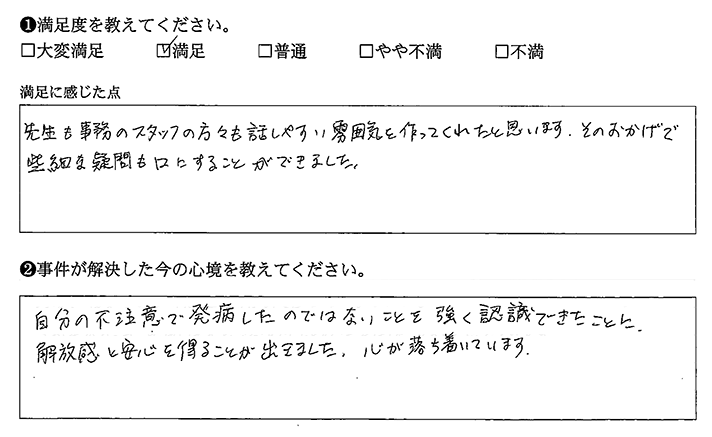 ❶満足度を教えてください。
□大変満足 ☑満足 □普通 □やや不満 □不満
満足に感じた点
先生も事務のスタッフの方々も話しやすい雰囲気を作ってくれたと思います。そのおかげで
些細な疑問も口にすることができました。
❷事件が解決した今の心境を教えてください。
自分の不注意で発病したのではないことを強く認識できたことに、
解放感と安心を得ることが出来ました。心が落ち着いています。